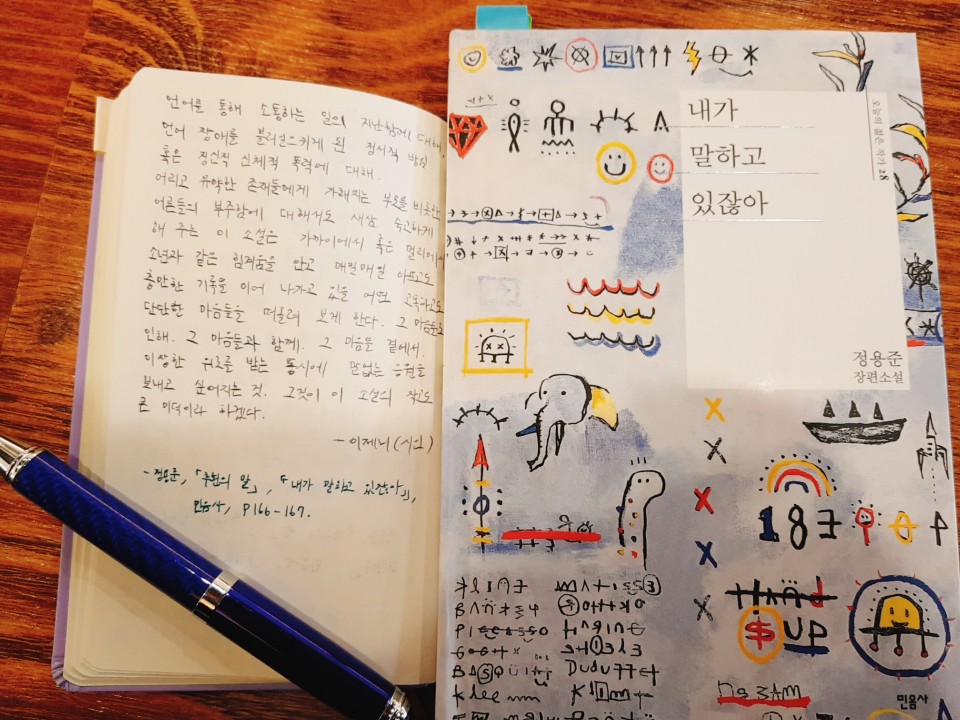 언어를 통해 소통하는 일의 지난함에 대해.
언어 장애를 불러일으키게 된 정서적 방임
혹은 정신적 신체적 폭력에 대해.
어리고 유약한 존재들에게 가해지는 부모를 비롯한
어른들의 부주함에 대해서도 새삼 숙고하게
해 주는 이 소설은 가까이에서 혹은 멀리에서
소년과 같은 힘겨움을 안고 매일매일 아프고도
충만한 기록을 이어 나가고 있을 어떤 고독하고도
단단한 마음들을 떠올려 보게 한다. 그 마음들로
인해. 그 마음들과 함께. 그 마음들 곁에서.
이상한 위로를 받는 동시에 말없는 응원을
보내고 싶어지는 것. 그것이 이 소설의 작고도
큰 미덕이라 하겠다.
- 이제니(시인)
- 정용준, 「추천의 말」, 『내가 말하고 있잖아』,
민음사, p166-167.
내가
말하고
있잖아
오늘의 젊은 작가 28
정용준
장편소설
187
UP
민음사